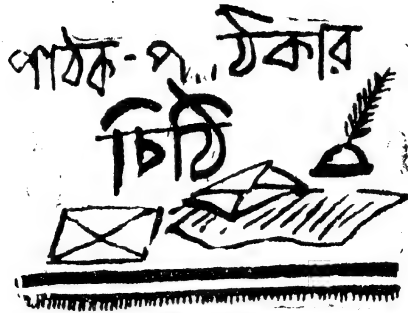 পাঠক-প...ঠিকার
চিঠি